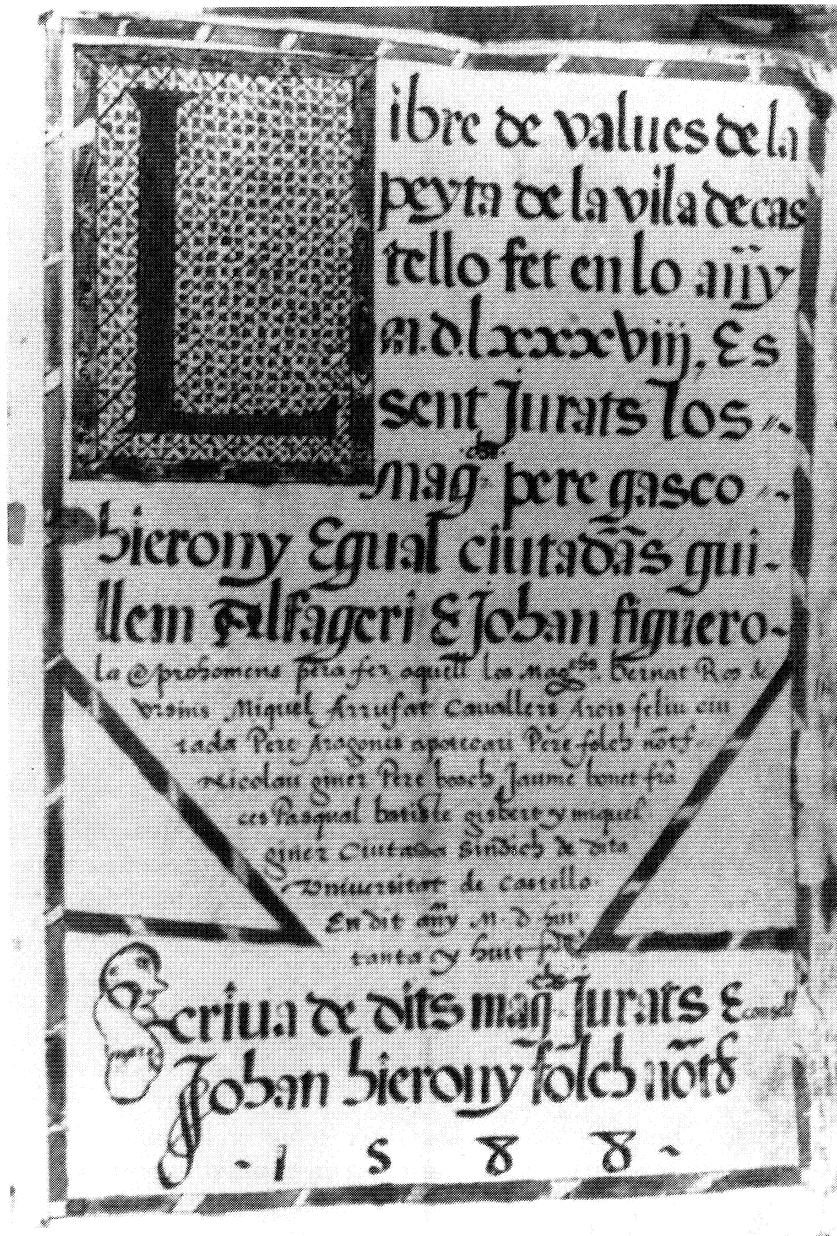 Libre de values de la
peyta de la vila de cas
tello fet en lo añy
M.D.lxxxviij, Es
sent Jurats los
mag.cbs pere gasco
hierony Egual ciutadãs gui-
llem Alfageri E Johan figuero-
la E prohomens pera fer aquell los Mag.cbs bernat Ros de
Vrsins Miquel Arrufat Cavallers Arcis feliu ciu
tada Pere Aragones apotecari Pere folch notr
Nicolau giner Pere bosch Jaume bonet frã
ces Pasqual batiste gisbert y miquel
giner Ciutada Sindich de dita
Vniversitat de Castello
En dit añy M. D. hui
tanta y huit
Scriua de dits mag.cbs Jurats E consell
Johan hierony folch notr
-1 5 8 8-